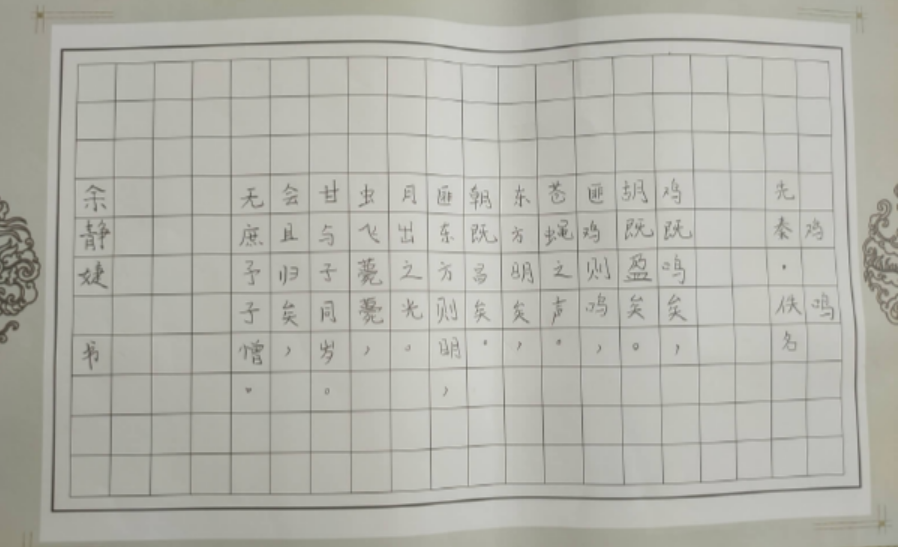 鸡鸣
先秦·佚名
鸡既鸣矣，
胡既盈矣。
匪鸡则鸣，
苍蝇之声。
东方明矣，
朝既昌矣。
匪东方则明，
月出之光。
虫飞薨薨，
甘与子同岁。
会且归矣，
无庶予子憎。
余静婕 书